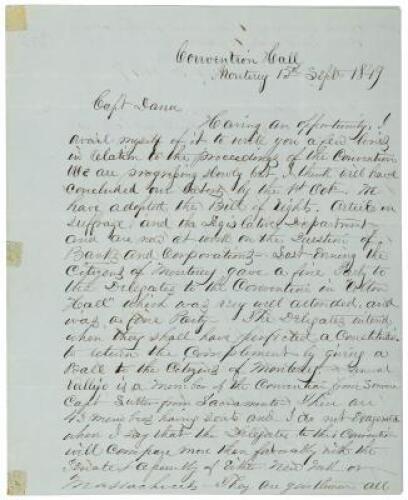 Convention Hall
Monterey 15th Sept 1849
Capt Dana
Having an opportunity, I
avail myself of it to write you a few lines
in relation to the proceedings of the Convention
We are progressing slowly but, I think will have
concluded our by the 1st Oct. We
have adopted the Bill of Rights. Article on
Suffrage, and the Legislative Department
and are now at work on the Question of
Banks and Corporations – Last Evening the
Citizens of Monterey gave a fine Party to
the Delegates to the Convention in
Hall which was very well attended, and
was a fine Party – The Delegates intend
when they shall have perfected a Constitution
to return the Complement by giving a
Ball to the Citizens of Monterey – General
Vallejo is a Member of the Convention from Sonoma
Capt Sutter from Sacramento There are
43 members having seats and I do not Exagerate
when I say that the Delegates to this Convention
will Compare more than favorably with the
Senate & Assembly of Either New York or
Massachusetts – They are gentlemen all